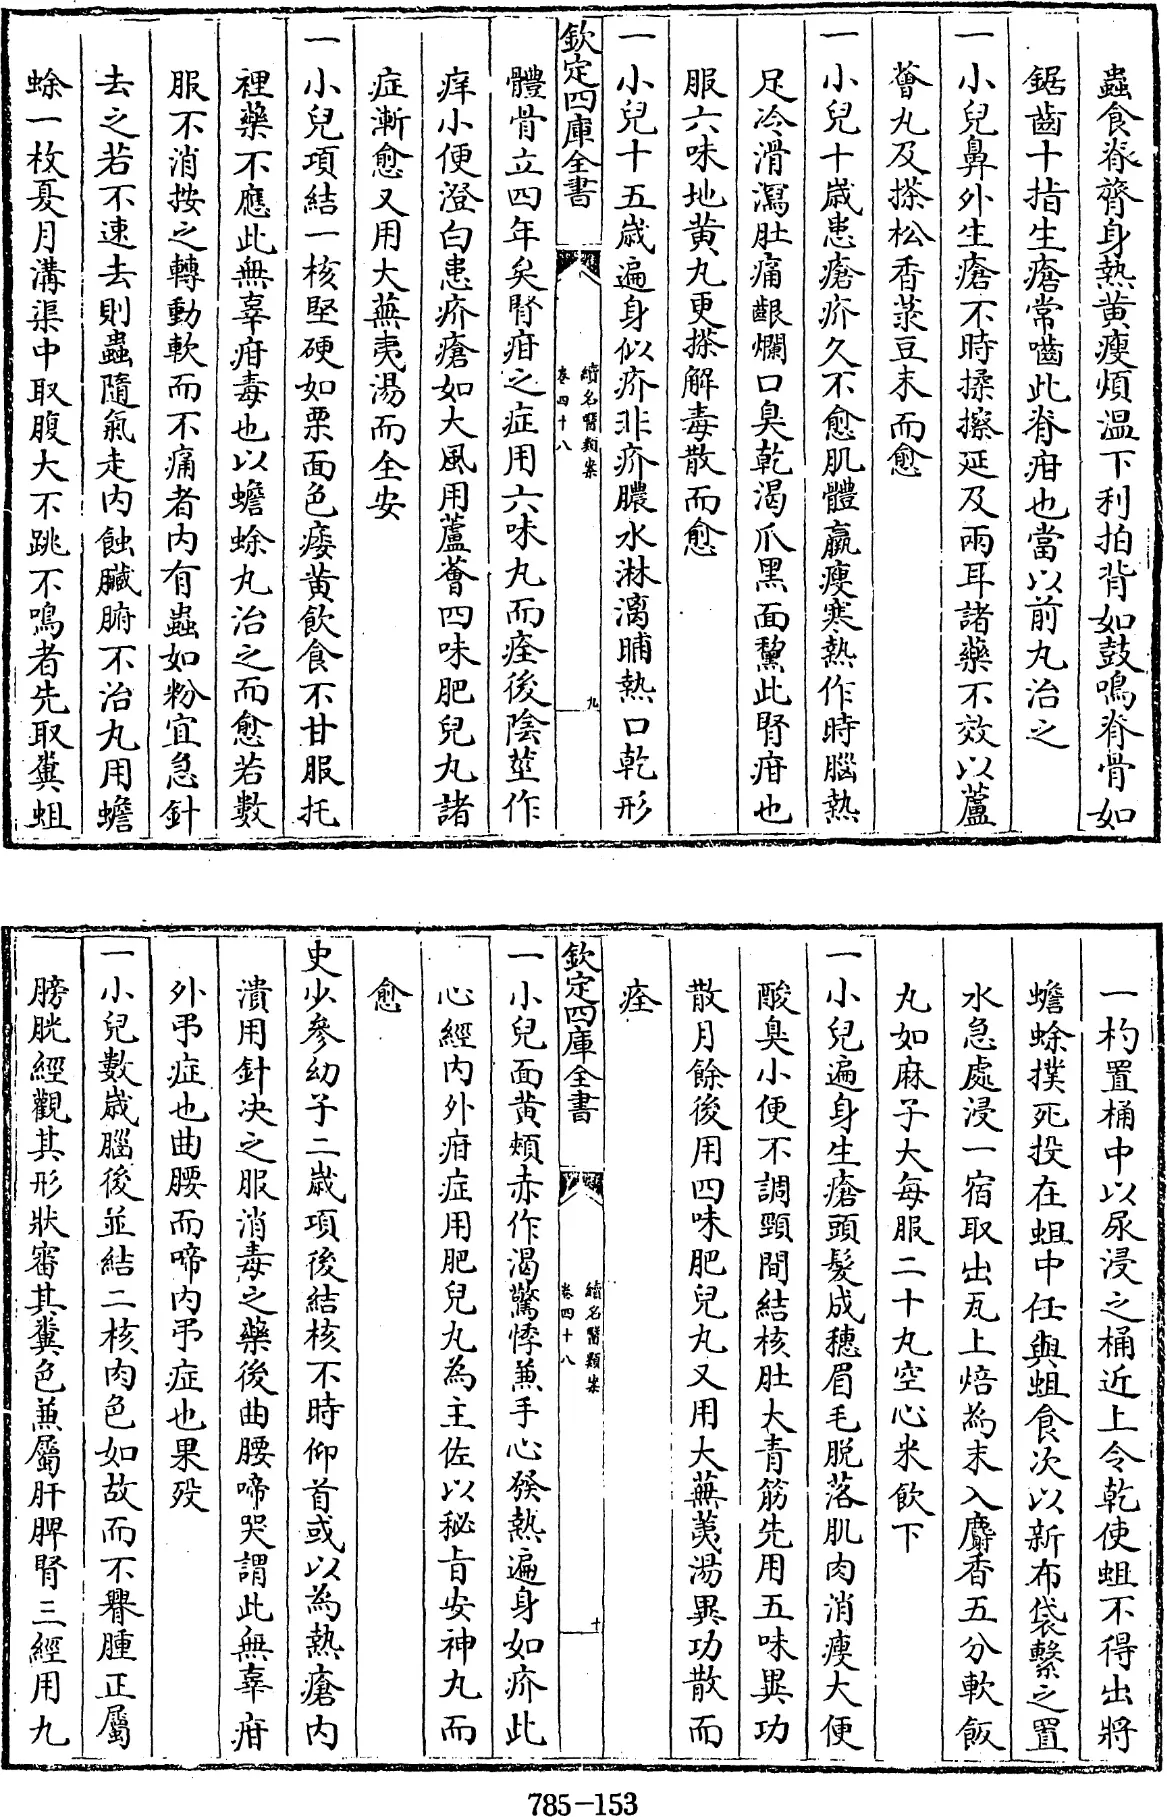 蟲食脊膂身熱黄瘦煩溫下利拍背如鼓鳴脊骨如
鋸齒十指生瘡常嚙此脊疳也當以前丸治之
一小兒鼻外生瘡不時揉擦延及兩耳諸藥不效以蘆
薈丸及搽松香菉豆末而愈
一小兒十歳患瘡疥久不愈肌體羸瘦寒熱作時腦熱
足冷滑瀉肚痛齦爛口臭乾渴爪黑面黧此腎疳也
服六味地黄丸更搽解毒散而愈
一小兒十五歳遍身似疥非疥膿水淋漓晡熱口乾形
欽定四庫全書
續名醫類案
卷四十八
九
體骨立四年矣腎疳之症用六味丸而痊後陰莖作
痒小便澄白患疥瘡如大風用蘆薈四味肥兒丸諸
症漸愈又用大蕪荑湯而全安
一小兒項結一核堅硬如栗面色痿黄飲食不甘服托
裡藥不應此無辜疳毒也以蟾蜍丸治之而愈若數
服不消按之轉動軟而不痛者内有蟲如粉宜急針
去之若不速去則蟲隨氣走内蝕臟腑不治丸用蟾
蜍一枚夏月溝渠中取腹大不跳不鳴者先取糞蛆
一杓置桶中以尿浸之桶近上令乾使蛆不得出將
蟾蜍撲死投在蛆中任與蛆食次以新布袋繫之置
水急處浸一宿取出瓦上焙為末入麝香五分軟飯
丸如麻子大每服二十丸空心米飲下
一小兒遍身生瘡頭髮成穗眉毛脱落肌肉消瘦大便
酸臭小便不調頸間結核肚大青筋先用五味異功
散月餘後用四味肥兒丸又用大蕪荑湯異功散而
痊
欽定四庫全書
續名醫類案
卷四十八
十
一小兒面黄頰赤作渴驚悸兼手心發熱遍身如疥此
心經内外疳症用肥兒丸為主佐以秘旨安神丸而
愈
史少參幼子二歳項後結核不時仰首或以為熱瘡内
潰用針决之服消毒之藥後曲腰啼哭謂此無辜疳
外弔症也曲腰而啼内弔症也果殁
一小兒數歳腦後並結二核肉色如故而不焮腫正屬
膀胱經觀其形狀審其糞色兼屬肝脾腎三經用九
785-153